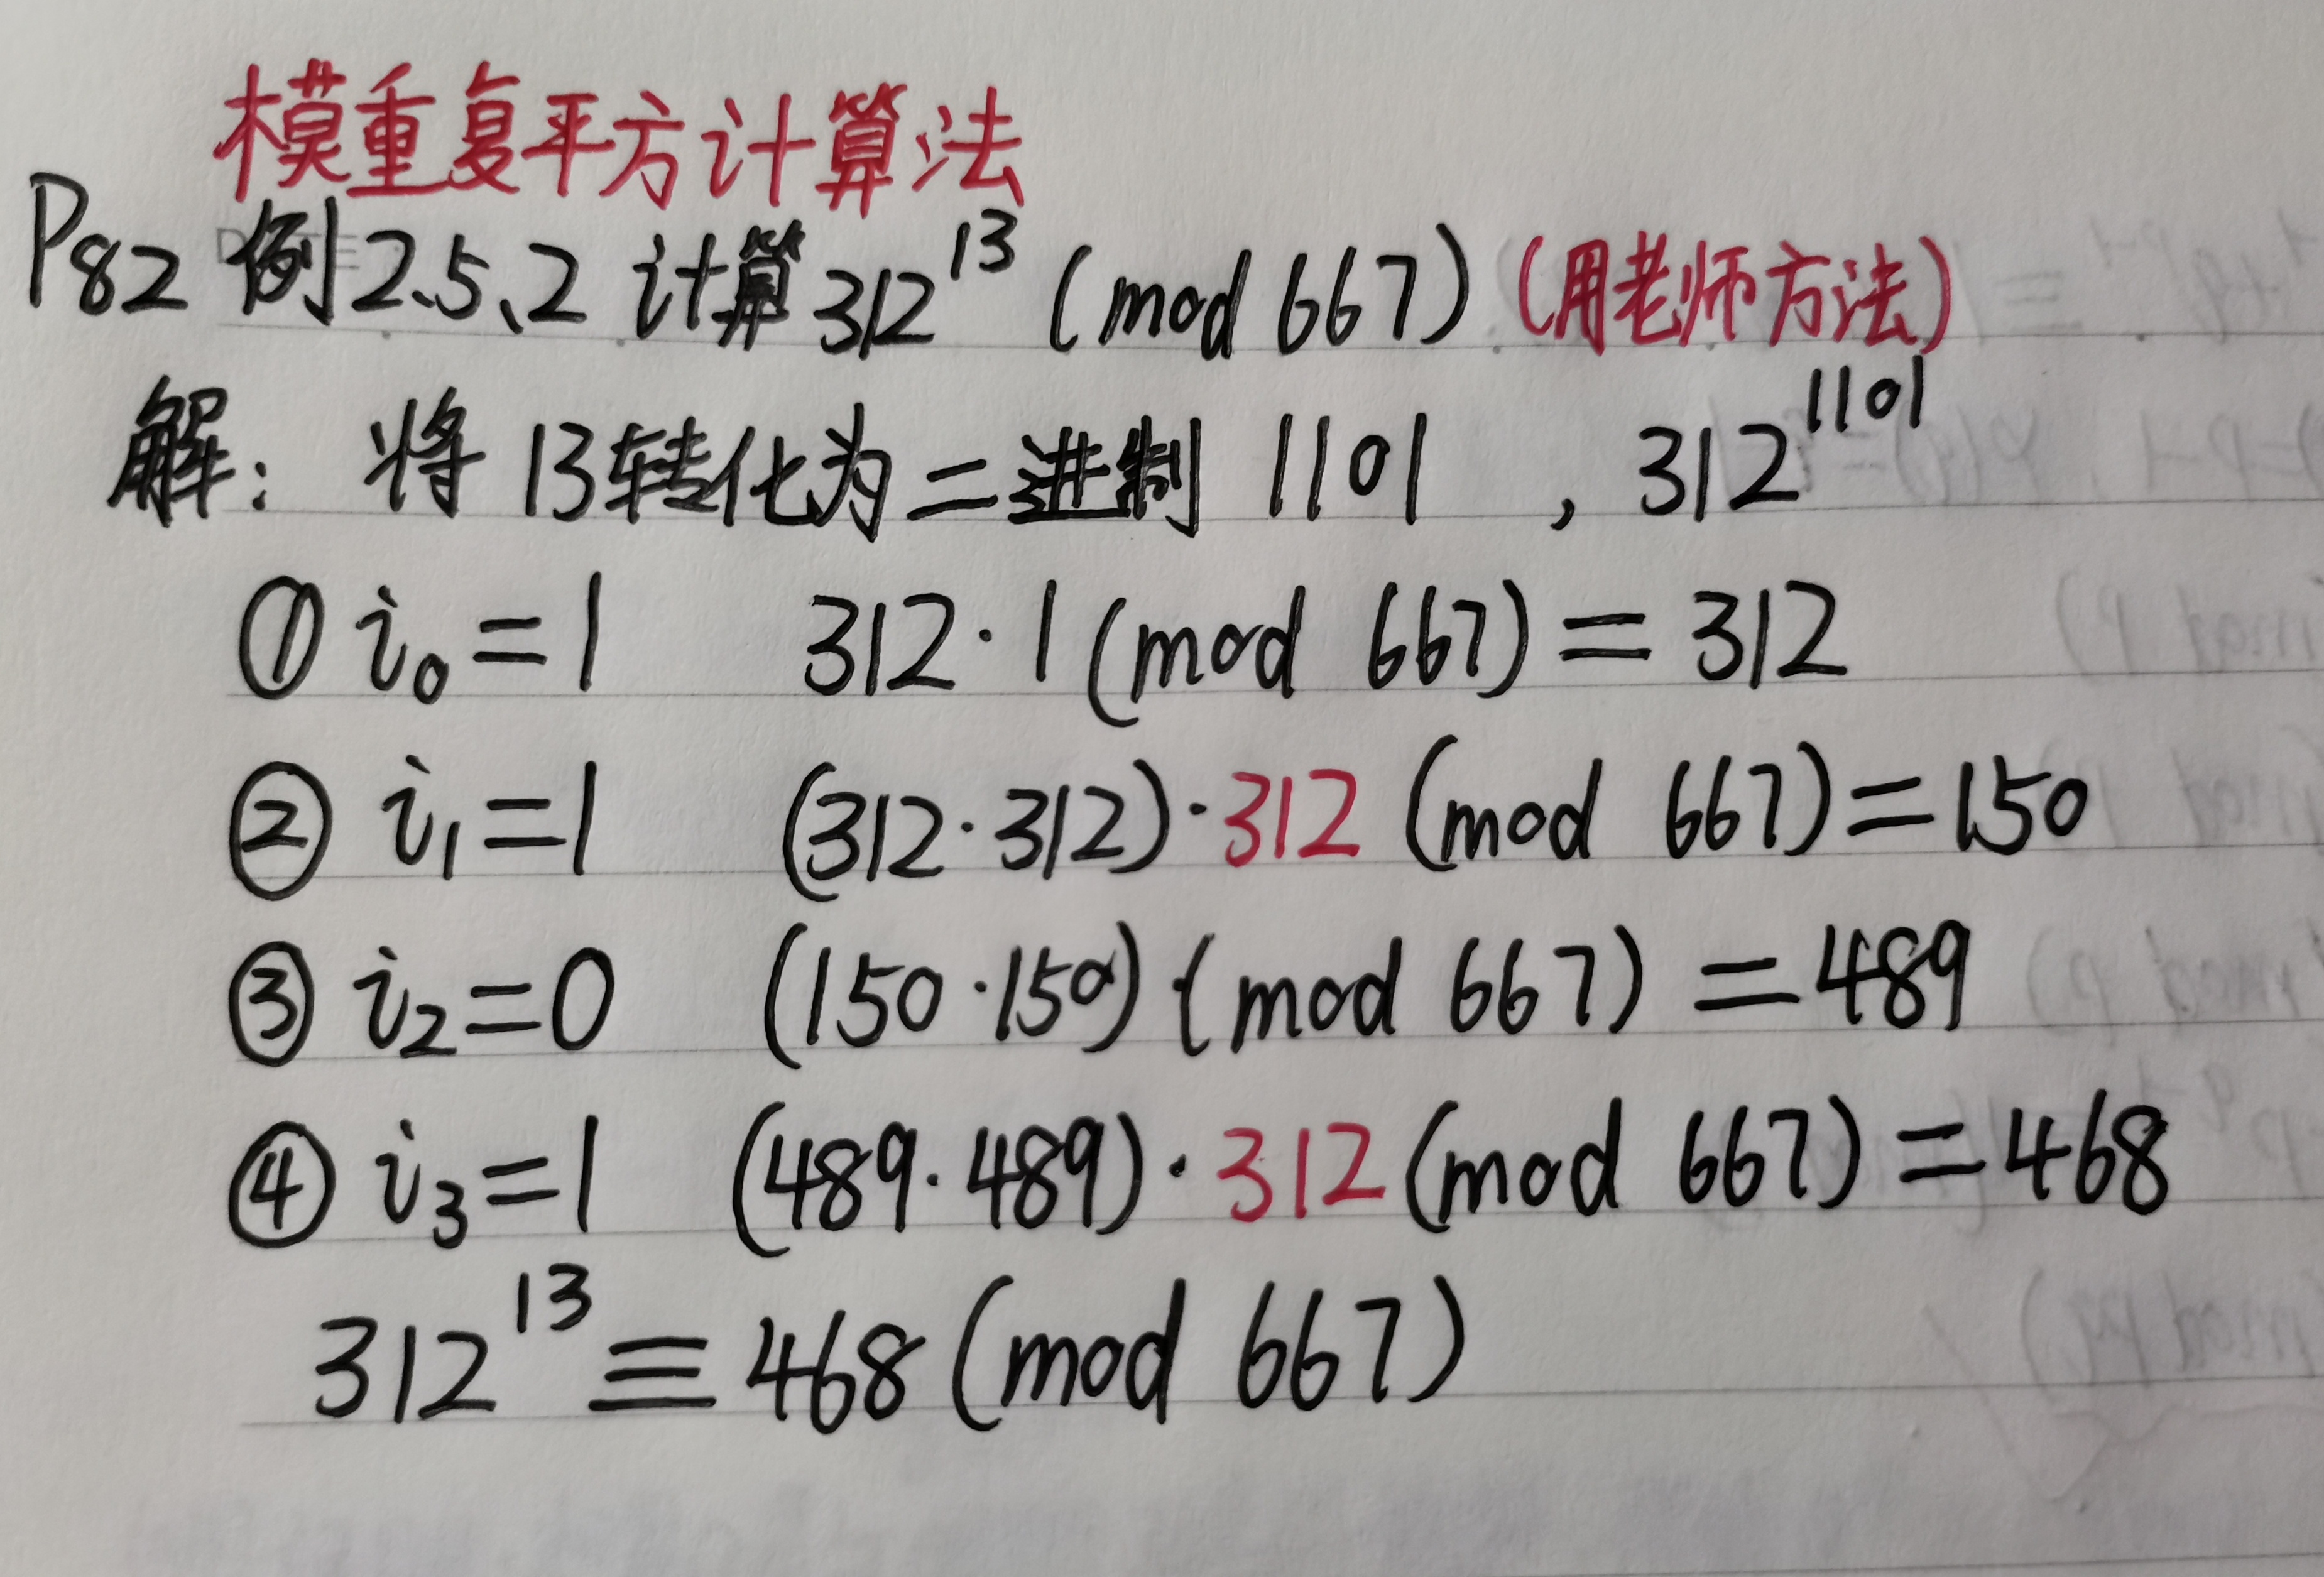 模重复平方计算法
P82 例2.5.2 计算312^13 (mod 667) (用老师方法)
解: 将13转化为二进制 1101 , 312^1101
① i₀=1 312·1(mod 667)=312
② i₁=1 (312·312)·312 (mod 667)=150
③ i₂=0 (150·150)(mod 667)=489
④ i₃=1 (489·489)·312(mod 667)=468
312^13≡468(mod 667)